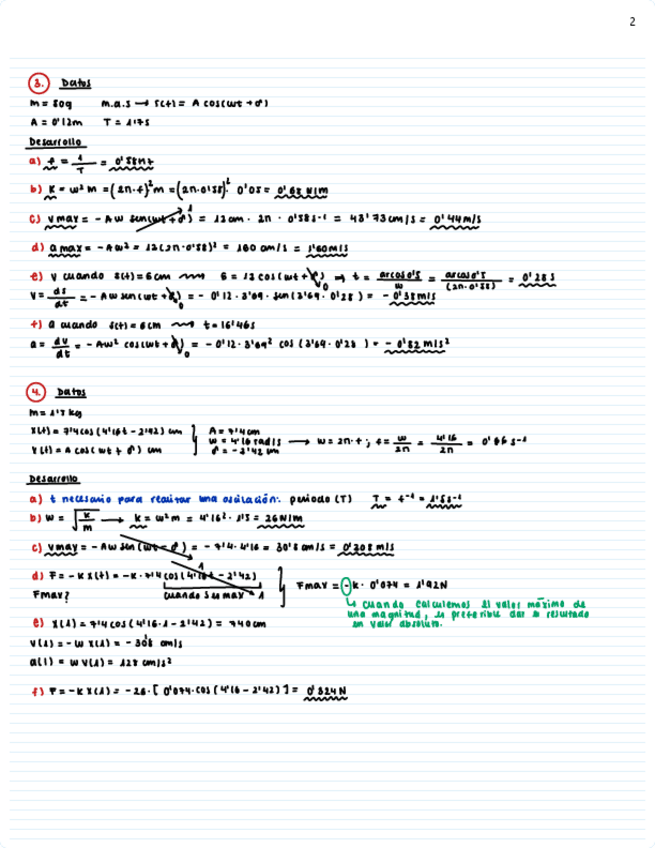 2
3. Datos
m = 50g m.a.s → s(t) = A cos(wt + σ)
A = 0'12m T = 1'75
Desarrollo
a) f = 1/T = 0'58Hz
b) K = w² m = (2π·f)² m = (2π·0'58)² 0'05 = 0'65 N/m
c) vmax = - Aw sen(wt + σ) = 12cm · 2π · 0'58s⁻¹ = 43'73cm/s = 0'44m/s
d) amax = - Aw² = 12(2π·0'58)² = 160 cm/s = 1'60m/s
e) v cuando s(t) = 6cm 6 = 12 cos(wt + σ) → t = arcos0'5/w = arcos0'5/(2π·0'58) = 0'28s
v = ds/dt = - Aw sen(wt + σ) = - 0'12 · 3'69 · sen(3'69 · 0'28) = - 0'38m/s
f) a cuando s(t) = 6cm t = 16'46s
a = dv/dt = - Aw² cos(wt + σ) = - 0'12 · 3'69² cos (3'69 · 0'28) = - 0'82 m/s²
4. Datos
m = 1'5 kg
x(t) = 7'4 cos(4'16t - 2'42) cm A = 7'4cm
w = 4'16 rad/s → w = 2π·f ; f = w/2π = 4'16/2π = 0'66 s⁻¹
x(t) = A cos(wt + σ) cm σ = - 2'42 cm
Desarrollo
a) t necesario para realizar una oscilación: periodo (T) T = f⁻¹ = 1'5s⁻¹
b) w = √K/m → k = w² m = 4'16² · 1'5 = 26N/m
c) vmax = - Aw sen(wt - σ) = - 7'4 · 4'16 = 30'8 cm/s = 0'308 m/s
d) F = - K x(t) = - K · 7'4 cos(4'16t - 2'42) 1
Fmax? cuando sea max = 1
Fmax = - K · 0'074 = 1'92N
↳ cuando calculemos el valor máximo de
una magnitud, es preferible dar el resultado
en valor absoluto.
e) x(1) = 7'4 cos(4'16·1 - 2'42) = 7'40cm
v(1) = - w x(1) = - 30'8 cm/s
a(1) = w v(1) = 128 cm/s²
f) F = - K x(1) = - 26 · [ 0'074 · cos (4'16 - 2'42) ] = 0'324N